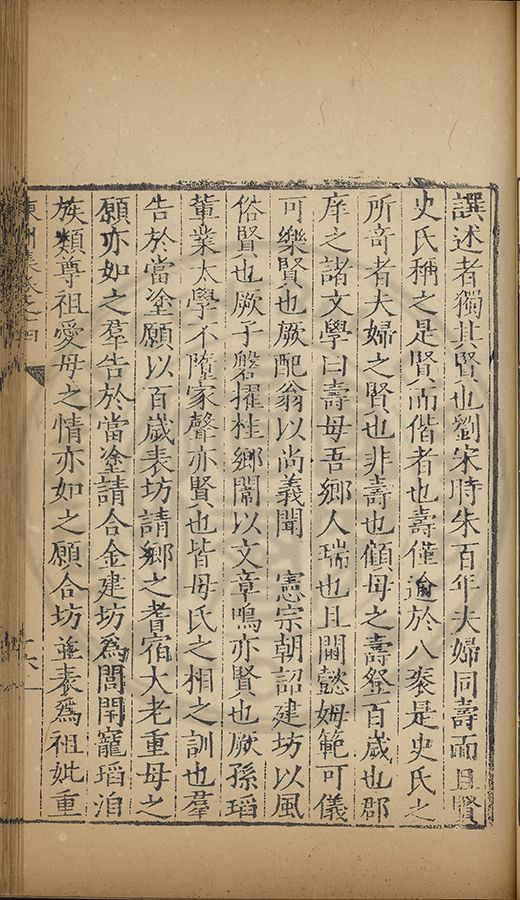 譔述者獨其賢也劉宋時朱百年夫婦同壽而且賢
史氏稱之是賢而偕者也壽僅逾於八袠是史氏之
所奇者夫婦之賢也非壽也顧母之壽登百歲也郡
庠之諸文學曰壽母吾鄉人瑞也且閫懿姆範可儀
可樂賢也厥配翁以尚義聞 憲宗朝詔建坊以風
俗賢也厥子磐擢桂鄉闈以文章鳴亦賢也厥孫瑫
輩業太學不隳家聲亦賢也皆母氏之相之訓也羣
告於當塗願以百歲表坊請鄉之耆宿大老重母之
願亦如之羣告於當塗請合金建坊為閭閈寵瑫洎
族類尊祖愛母之情亦如之願合坊並表為祖妣重
東洲集卷之四
十六